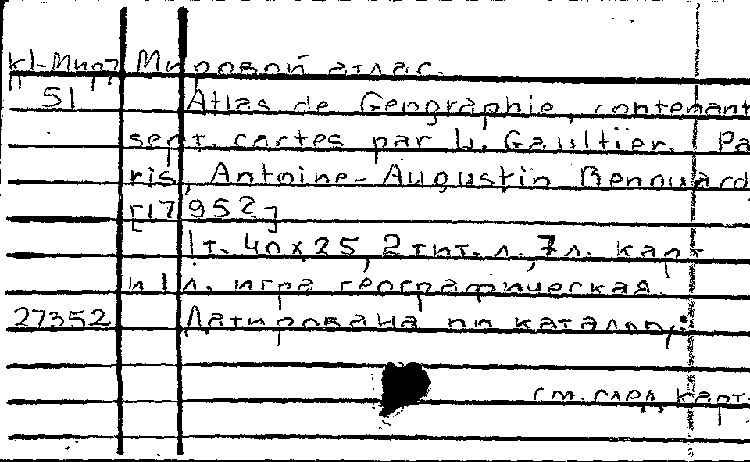 К1-Мир Мировой атлас.
51 Atlas de Geographie, contenant
sept cartes par L. Gaultier. Pa-
ris, Antoine-Augustin Renouard
[17952]
1 т. 40х25, 2 тит. л., 7 л. карт
и 1 л. игра географическая.
27352 Датирована по каталогу:
см. след. карт.